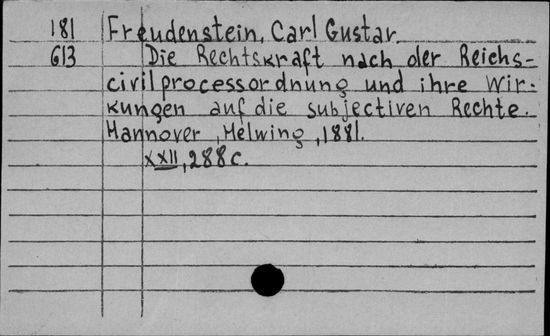 181 Freudenstein, Carl Gustav.
613 Die Rechtskraft nach der Reichs-
civilprocessordnung und ihre Wir-
kungen auf die subjectiven Rechte.
Hannover, Helwing, 1881.
XXII, 288 c.